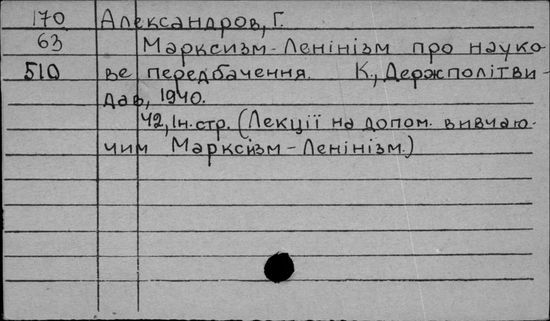 170 Александров, Г.
63 Марксизм-Ленінізм про науко-
510 ве передбачення. К, Держполітви-
дав, 1940.
42, Ін. стр. (Лекції на допом. вивчаю-
чим Марксизм-Ленінізм.)